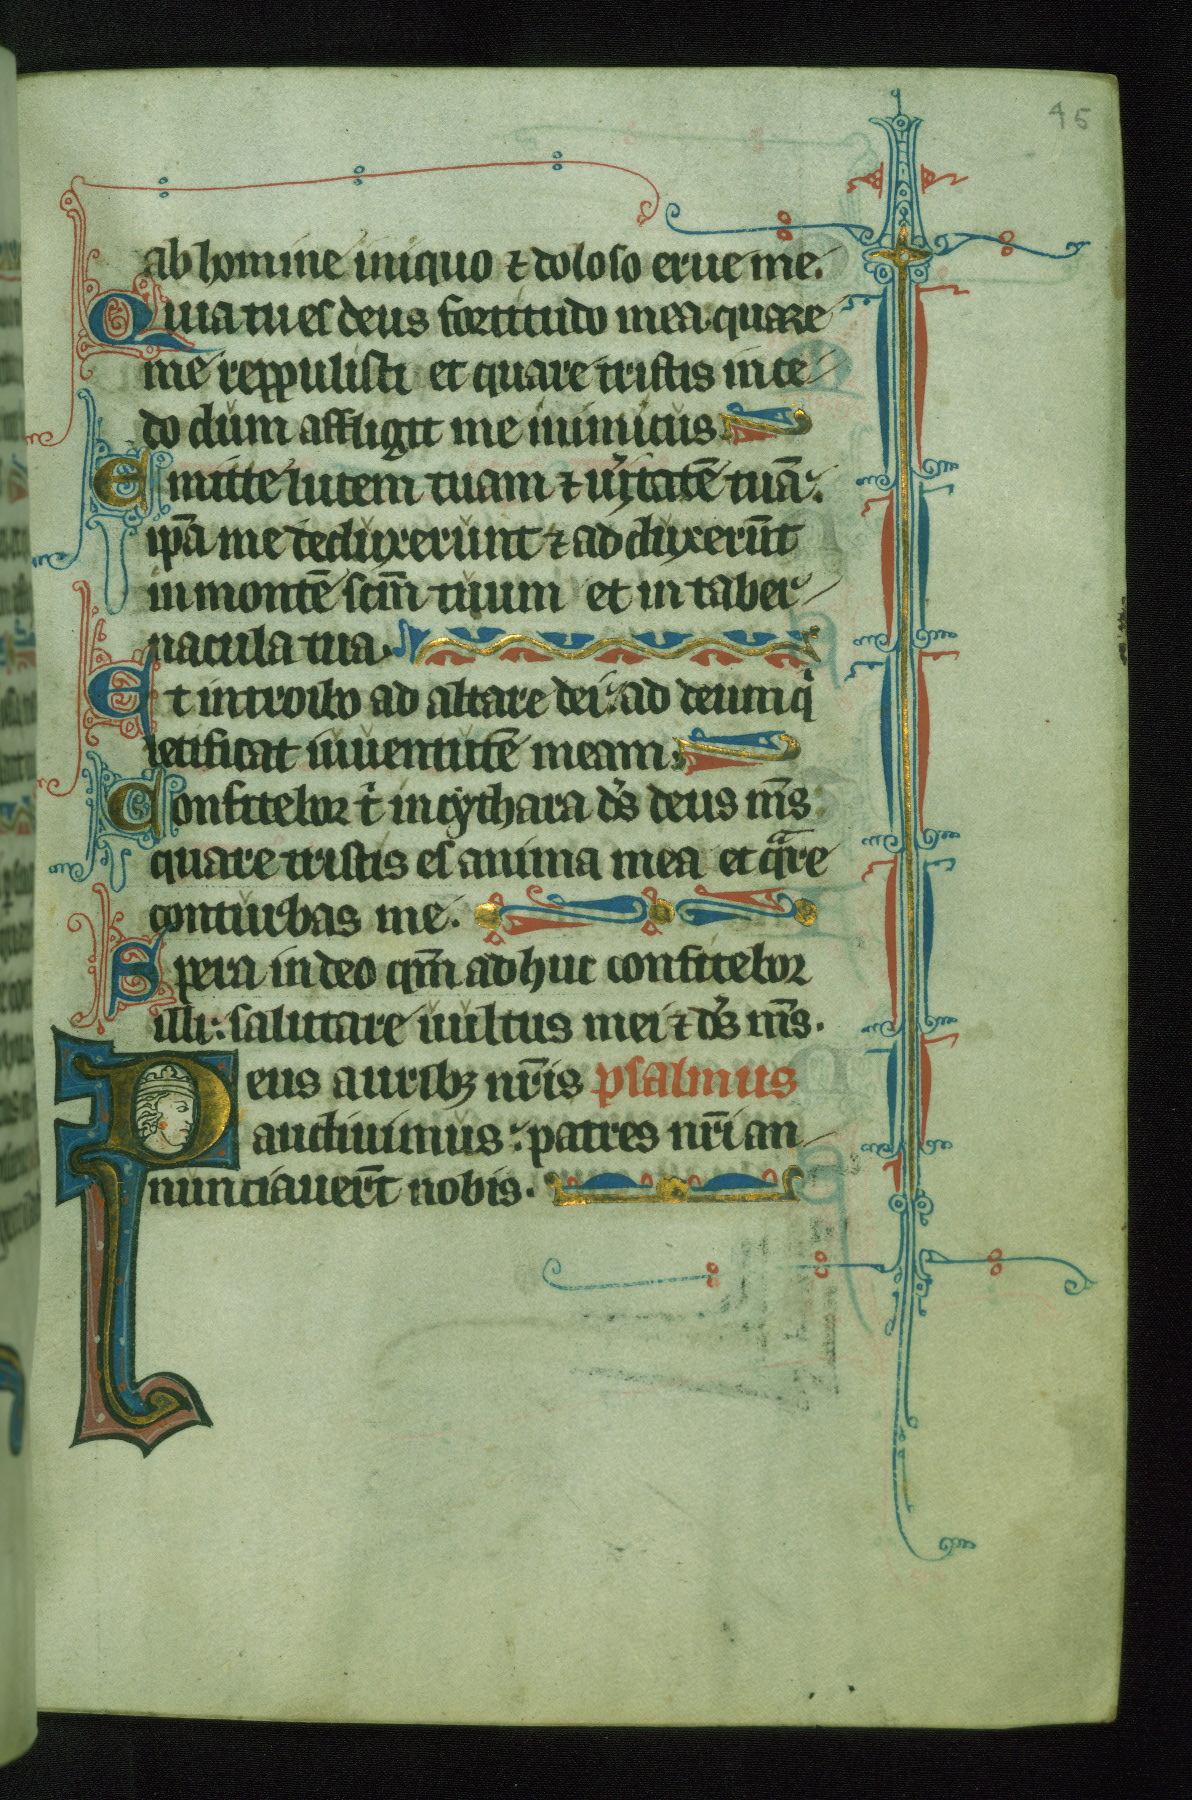 45
ab homine iniquo ⁊ doloso erue me.
Quia tu es deus fortitudo mea quare
me reppulisti et quare tristis ince
do dum affligit me inimicus
Emitte lucem tuam ⁊ ũitatẽ tuã.
ip̃a me deduxerunt ⁊ adduxerũt
in montẽ sc̃m tuum et in taber
nacula tua.
Et introibo ad altare dei ad deum q̃
letificat iuuentutẽ meam
Confitebor t̃ in cythara d̃s deus m̃s
quare tristis es anima mea et q̃re
conturbas me.
Spera in deo qm̃ adhuc confitebor
illi: salutare uultus mei ⁊ d̃s m̃s.
Deus auribꝫ nr̃is psalmus
audiuimus: patres nr̃i an
nunciauer̃t nobis.